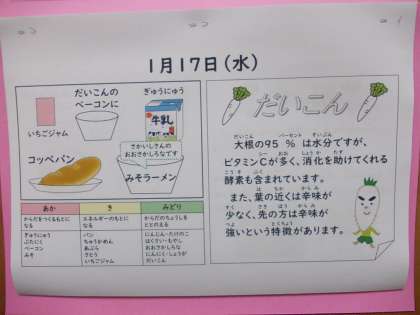 1月17日(水)
だいこんの
ベーコンに
ぎゅうにゅう
牛乳
いちごジャム
さかいしさんの
おおさかしろなです
コッペパン
みそラーメン
あか
き
みどり
からだをつくるもとに
なる
エネルギーのもとに
なる
からだのちょうしを
ととのえる
ぎゅうにゅう
ぶたにく
ベーコン
みそ
パン
ちゅうかめん
あぶら
さとう
いちごジャム
にんじん・たけのこ
はくさい・もやし
おおさかしろな
にんにく・しょうが
だいこん
だいこん
大根の95%は水分ですが、
ビタミンCが多く、消化を助けてくれる
酵素も含まれています。
また、葉の近くは辛味が
少なく、先の方は辛味が
強いという特徴があります。